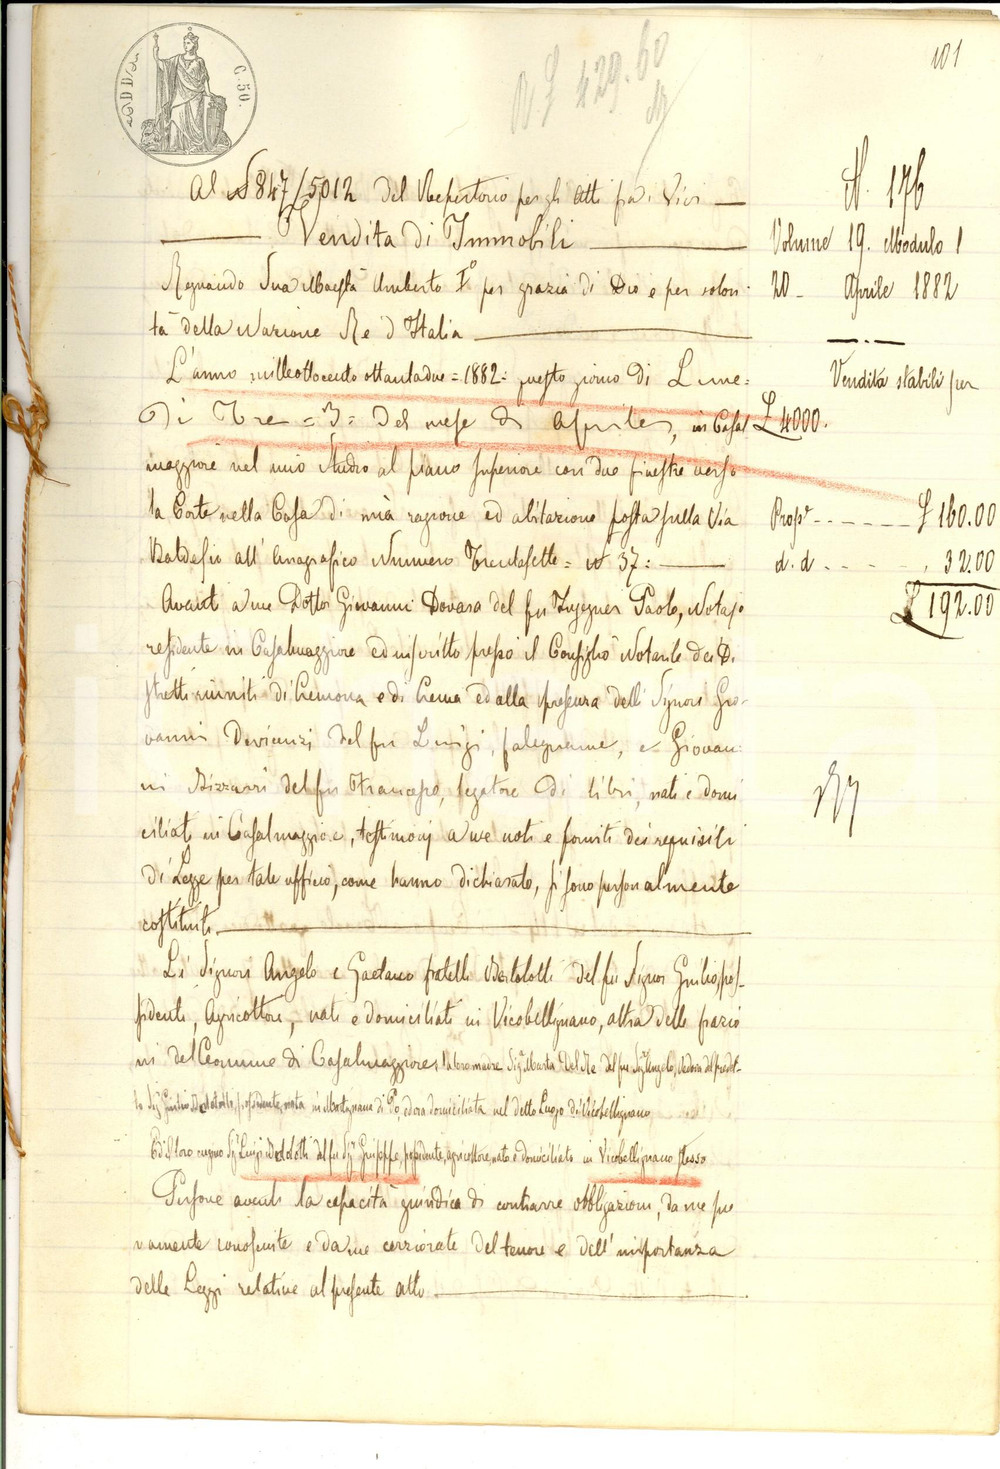 101
C. 50.
£ 429.60
Al N 847/5012 del Repertorio per gli Atti fra i Vivi
Vendita di Immobili
Regnando Sua Maestà Umberto I° per grazia di Dio e per volon-
tà della Nazione Re d'Italia
L'anno milleottocento ottantadue = 1882 = questo giorno di Lune=
dì Tre = 3 = del mese di Aprile, in Casal
maggiore nel mio Studio al piano superiore con due finestre verso
la Corte nella Casa di mia ragione ed abitazione posta sulla Via
Baldesio all'anagrafico Numero Trentasette = N 37 =
Avanti a me Dottor Giovanni Dovara del fu Ingegner Paolo, Notajo
residente in Casalmaggiore ed inscritto presso il Consiglio Notarile dei Di
stretti riuniti di Cremona e di Crema ed alla presenza delli Signori Gio-
vanni Devicenzi del fu Luigi, falegname, e Giovan
ni Bizzarri del fu Francesco, legatore di libri, nati e domi
ciliati in Casalmaggiore, testimonj a me noti e forniti dei requisiti
di Legge per tale officio, come hanno dichiarato, si sono personalmente
costituiti
Li Signori Angelo e Gaetano fratelli Bertolotti del fu Signor Giulio, pos-
sidenti, Agricoltori, nati e domiciliati in Vicobellignano, altra delle frazio
ni del Comune di Casalmaggiore, la loro madre Sig.a Marta Del Re del fu Sig.r Angelo, vedova del predet-
to Sig.r Giulio Bertolotti, possidente, nata in Martignana di Po, ed ora domiciliata nel detto Luogo di Vicobellignano
Ed il loro cugino Sig.r Luigi Bertolotti del fu Sig.r Giuseppe, possidente, agricoltore, nato e domiciliato in Vicobellignano stesso
Persone aventi la capacità giuridica di contrarre obbligazioni, da me pie
namente conosciute e da me cerziorate del tenore e dell'importanza
delle Leggi relative al presente atto
N. 176
Volume 19. Modulo 1
20 Aprile 1882
Vendita stabili per
£ 4000.
Prop.e £ 160.00
d. d. 32.00
£ 192.00